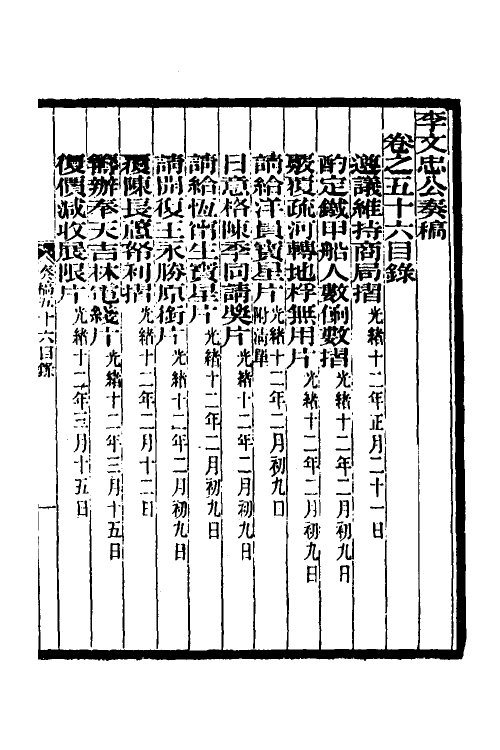 李文忠公奏稿
卷之五十六目錄
遵議維持商局摺 光緒十二年正月二十一日
酌定鐵甲船人數餉數摺 光緒十二年二月初九日
嚴覆疏河轉地桴無用片 光緒十二年二月初九日
請給洋員寶星片 附清單 光緒十二年二月初九日
日意格陳季同請獎片 光緒十二年二月初九日
請給恆甯生寶星片 光緒十二年二月初九日
請開復王永勝原銜片 光緒十二年二月初九日
覆陳長蘆帑利摺 光緒十二年二月十二日
辦奉天吉林電綫片 光緒十二年三月十五日
價減收展限片 光緒十二年三月十五日
奏稿五十六目錄
一